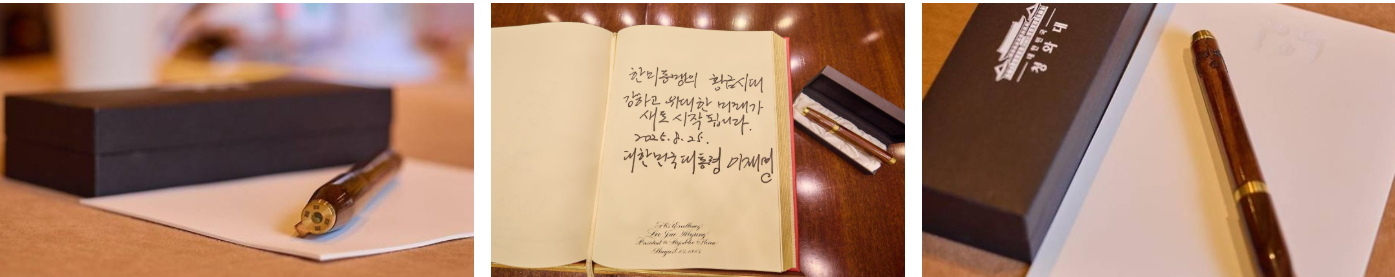 한미동맹의 황금시대
강하고 위대한 미래가
새로 시작됩니다.
2025. 8. 25.
대한민국 대통령 이재명
His Excellency
Lee Jae Myung
President of the Republic of Korea
August 25, 2025
대한민국
청와대